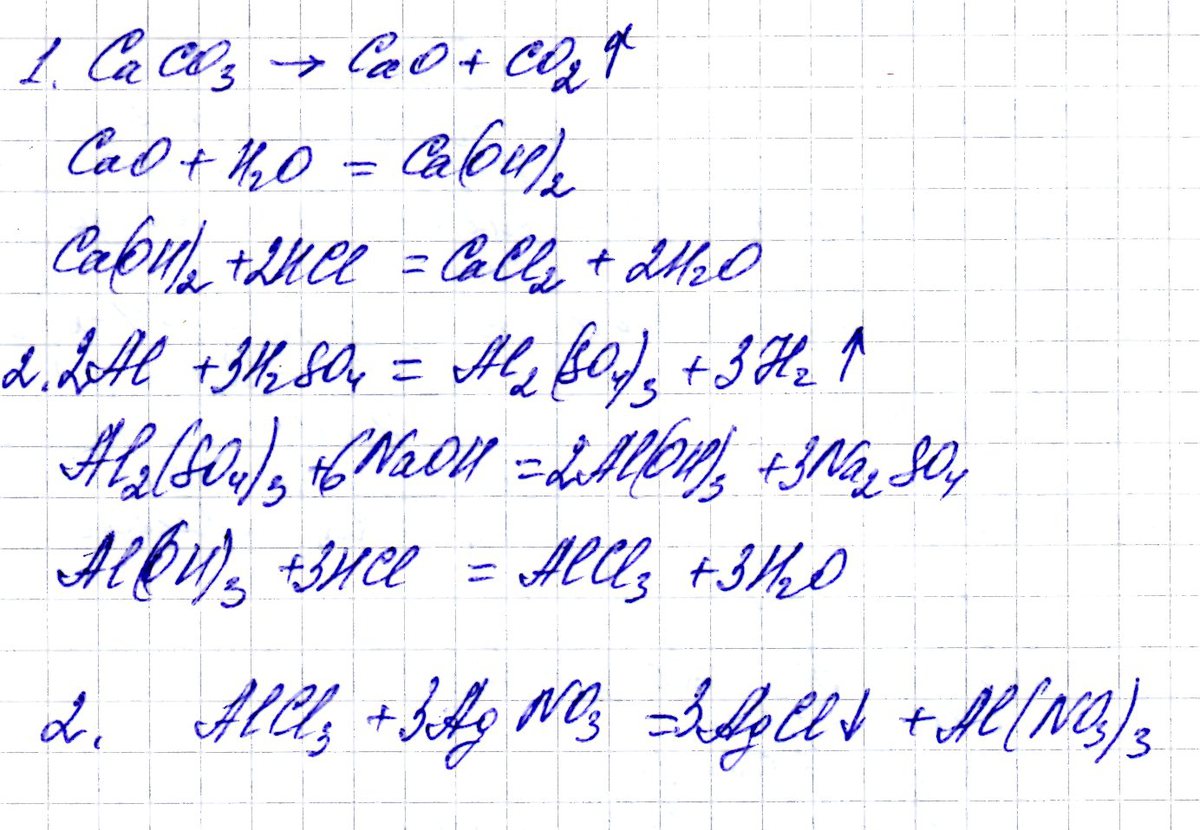 1. CaCO₃ → CaO + CO₂↑
CaO + H₂O = Ca(OH)₂
Ca(OH)₂ + 2HCl = CaCl₂ + 2H₂O
2. 2Al + 3H₂SO₄ = Al₂(SO₄)₃ + 3H₂↑
Al₂(SO₄)₃ + 6NaOH = 2Al(OH)₃ + 3Na₂SO₄
Al(OH)₃ + 3HCl = AlCl₃ + 3H₂O
2. AlCl₃ + 3AgNO₃ = 3AgCl↓ + Al(NO₃)₃